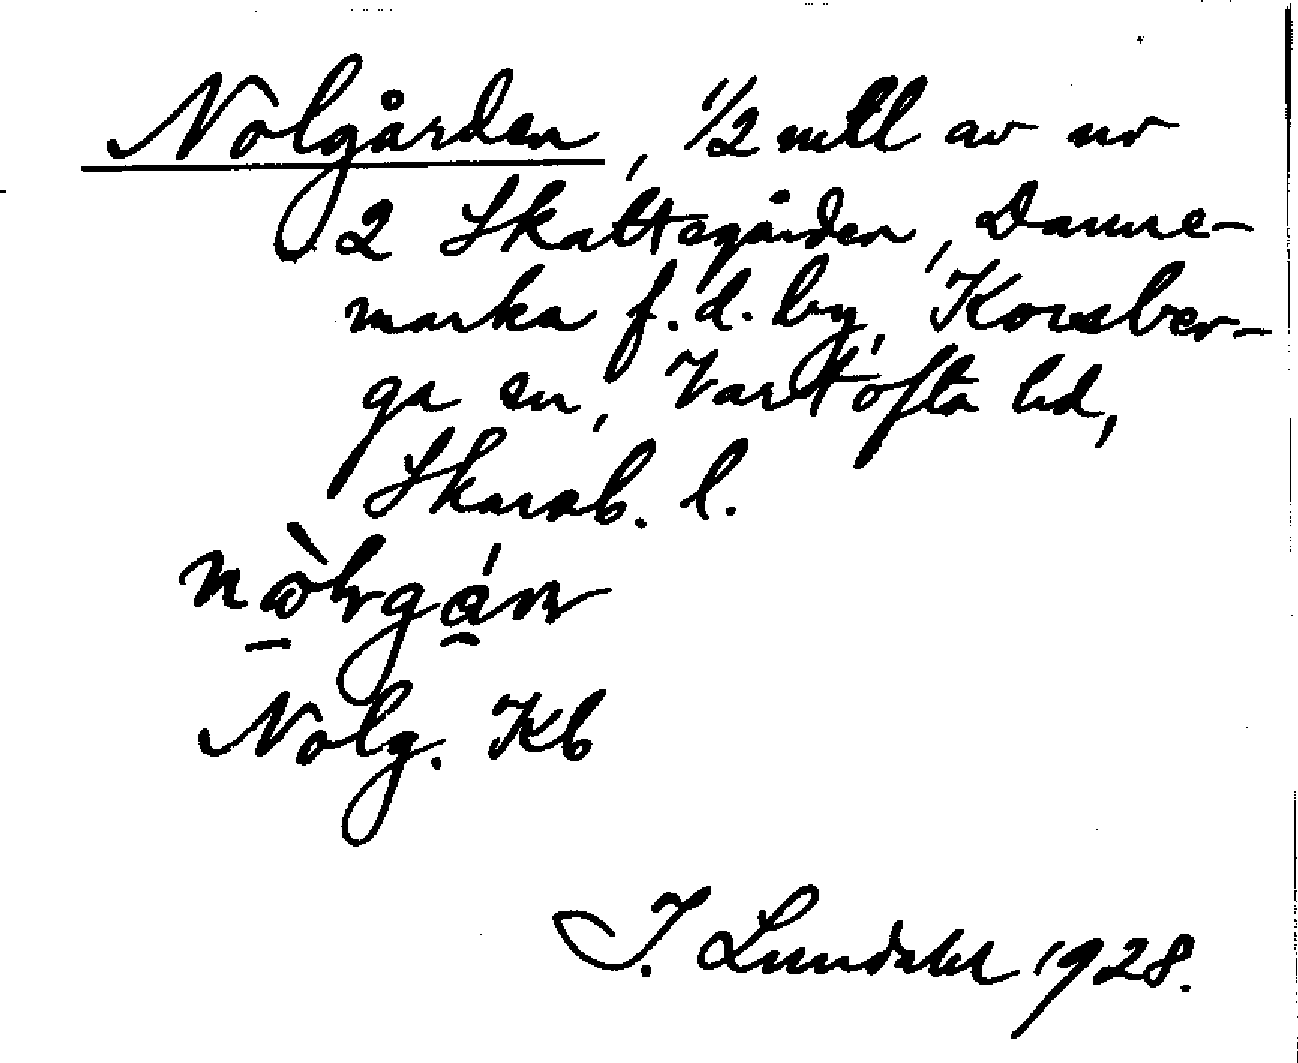 Nolgården, 1/2 mtl av nr
2 Skattegården, Danne-
marka f.d. by, Korsber-
ga sn, Vartofta hd,
Skarab. l.
Nolg. Kb
I. Lundahl 1928.